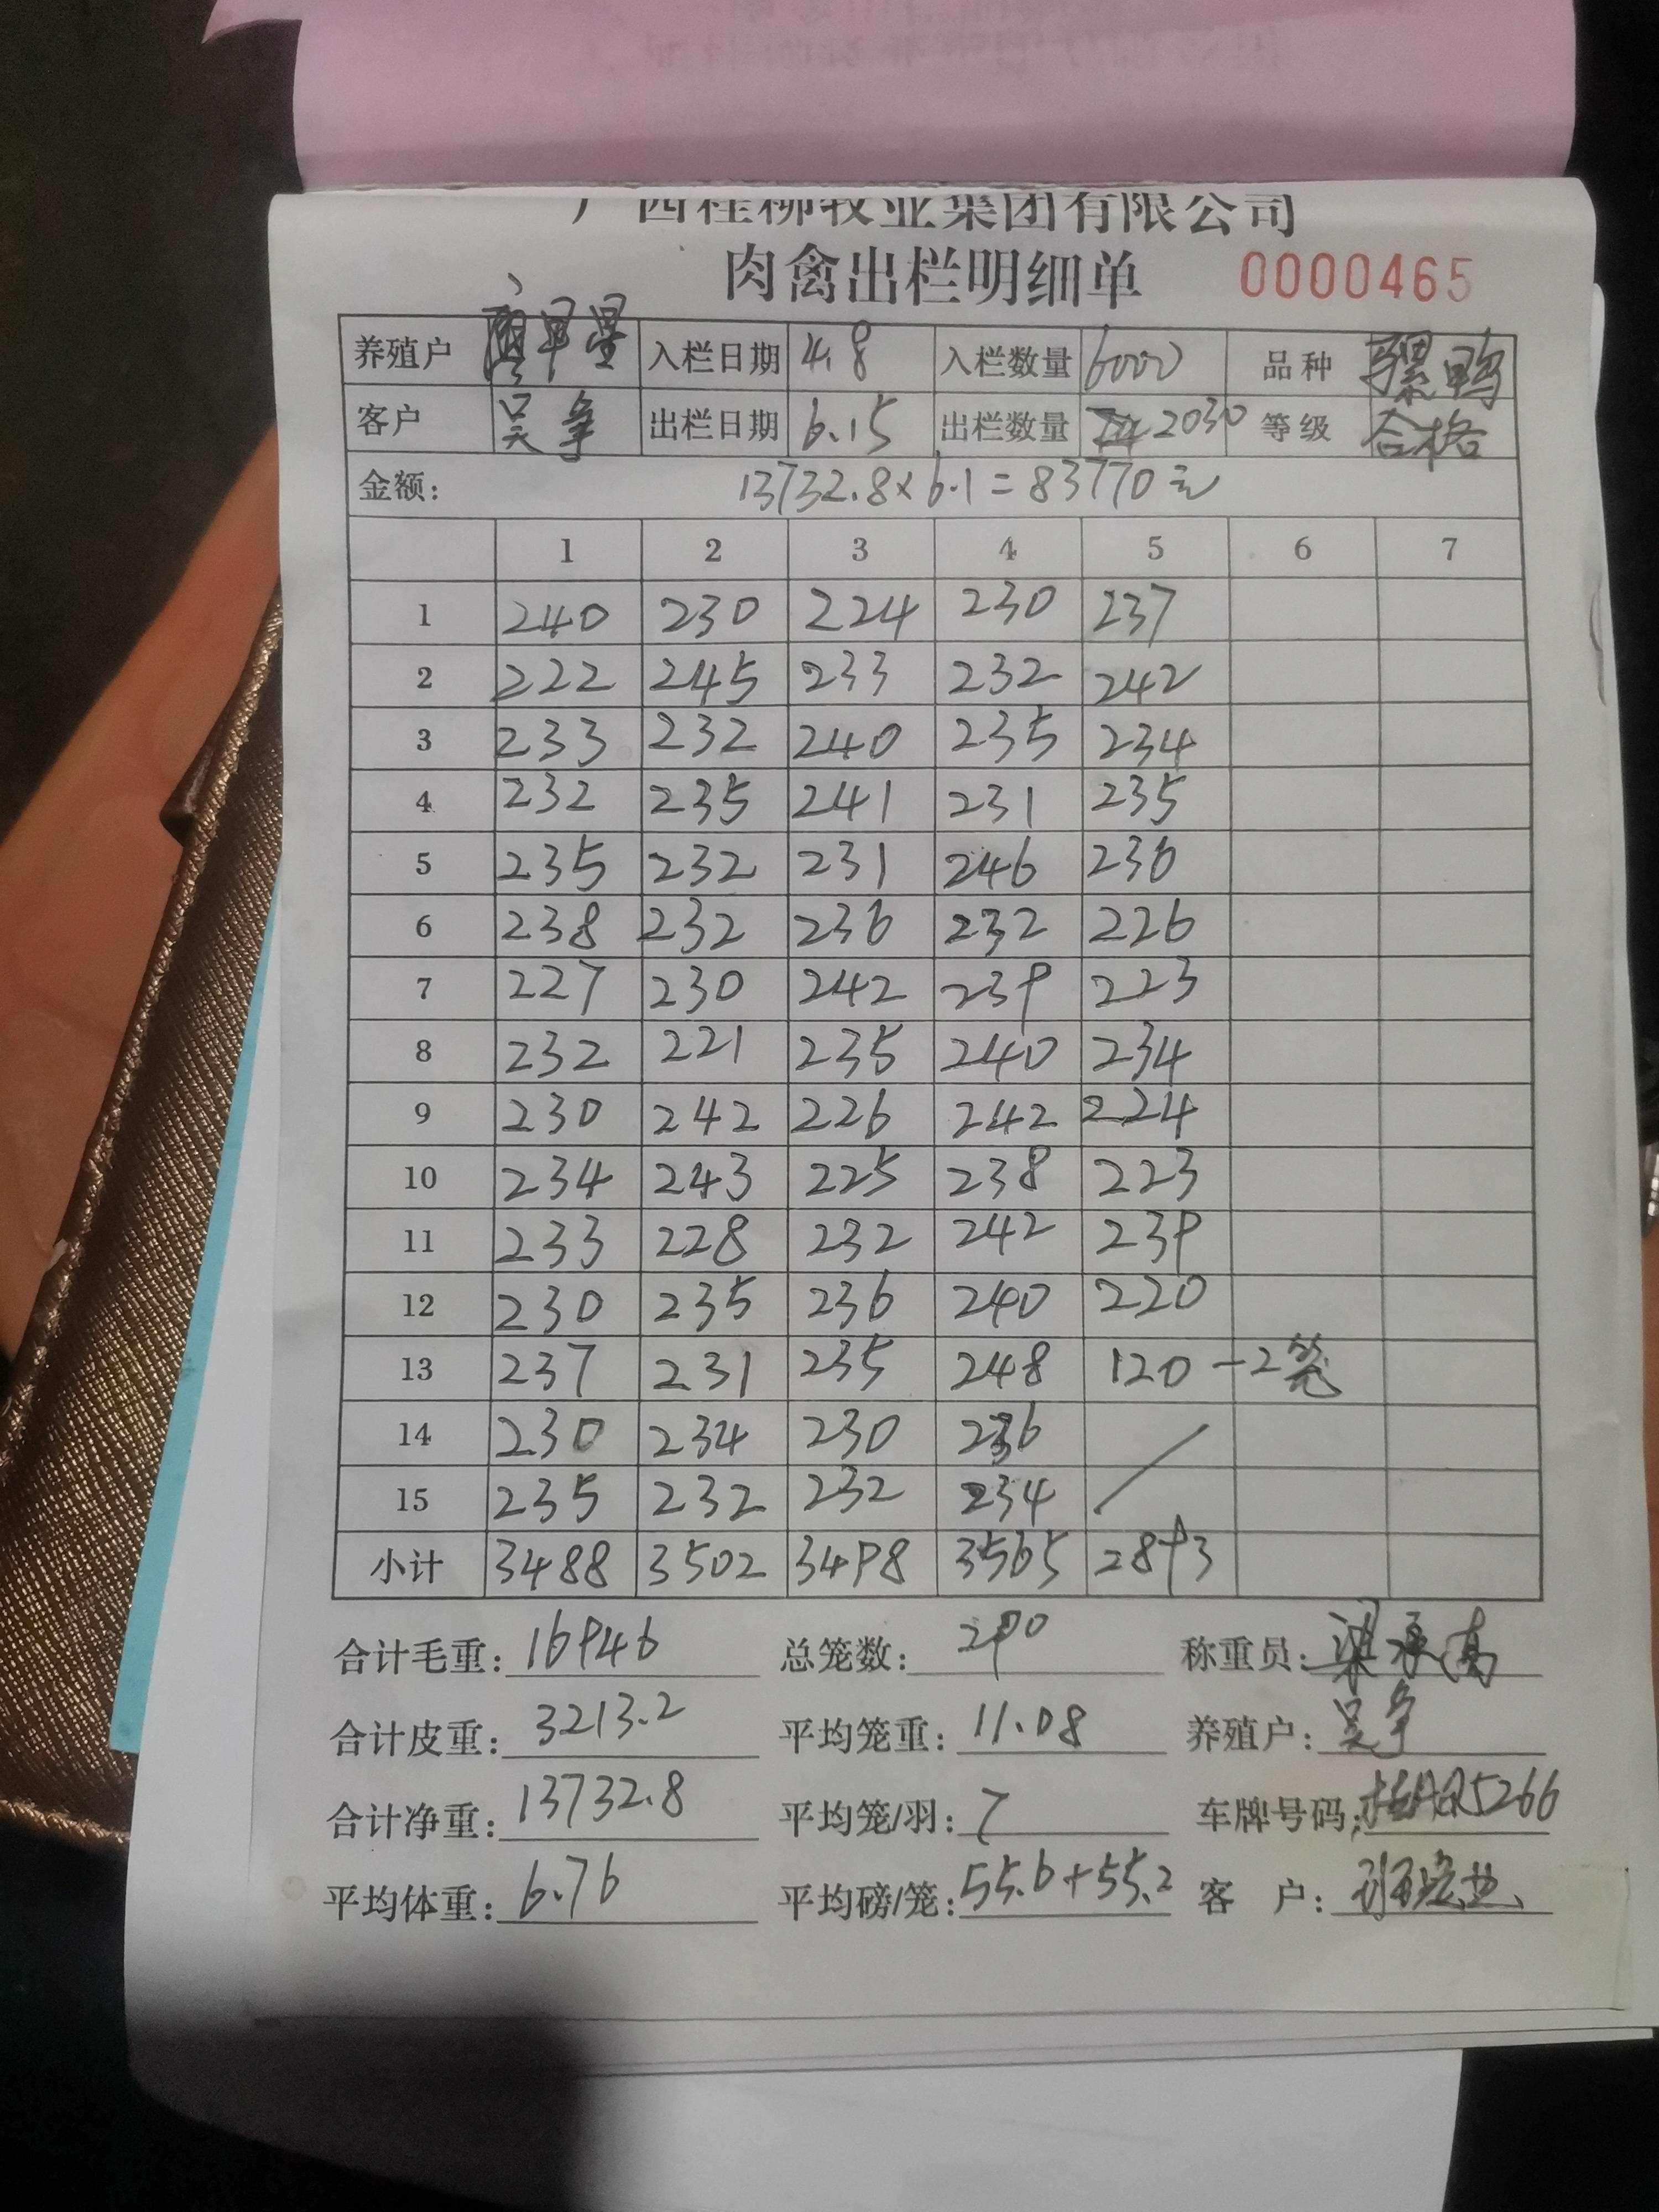 广西桂柳牧业集团有限公司
肉禽出栏明细单 0000465
养殖户 入栏日期 4.8 入栏数量 6000 品种 骡鸭
客户 吴争 出栏日期 6.15 出栏数量 2030 等级 合格
金额: 13732.8×6.1=83770元
1 2 3 4 5 6 7
1 240 230 224 230 237
2 222 245 233 232 242
3 233 232 240 235 234
4 232 235 241 231 235
5 235 232 231 246 236
6 238 232 236 232 226
7 227 230 242 239 223
8 232 221 235 240 234
9 230 242 226 242 224
10 234 243 225 238 223
11 233 228 232 242 239
12 230 235 236 240 220
13 237 231 235 248 120-2笼
14 230 234 230 236
15 235 232 232 234
小计 3488 3502 3498 3565 2893
合计毛重: 16946 总笼数: 290 称重员:
合计皮重: 3213.2 平均笼重: 11.08 养殖户: 吴争
合计净重: 13732.8 平均笼/羽: 7 车牌号码: 5266
平均体重: 6.76 平均磅/笼: 55.6+55.2 客 户: